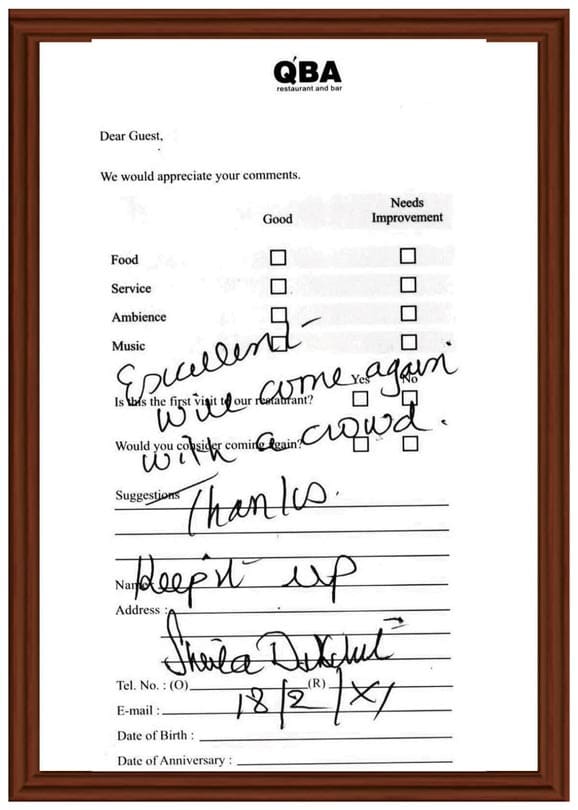 Q'BA
restaurant and bar
Dear Guest,
We would appreciate your comments.
Good
Needs
Improvement
Food
Service
Ambience
Music
Excellent
Yes
No
Is this the first visit to our restaurant?
will come again
Would you consider coming again?
with a crowd.
Suggestions
Thanks.
Name
Keep it up
Address :
Sheila Dikshit
Tel. No. : (O)
(R)
18/2/XI
E-mail :
Date of Birth :
Date of Anniversary :